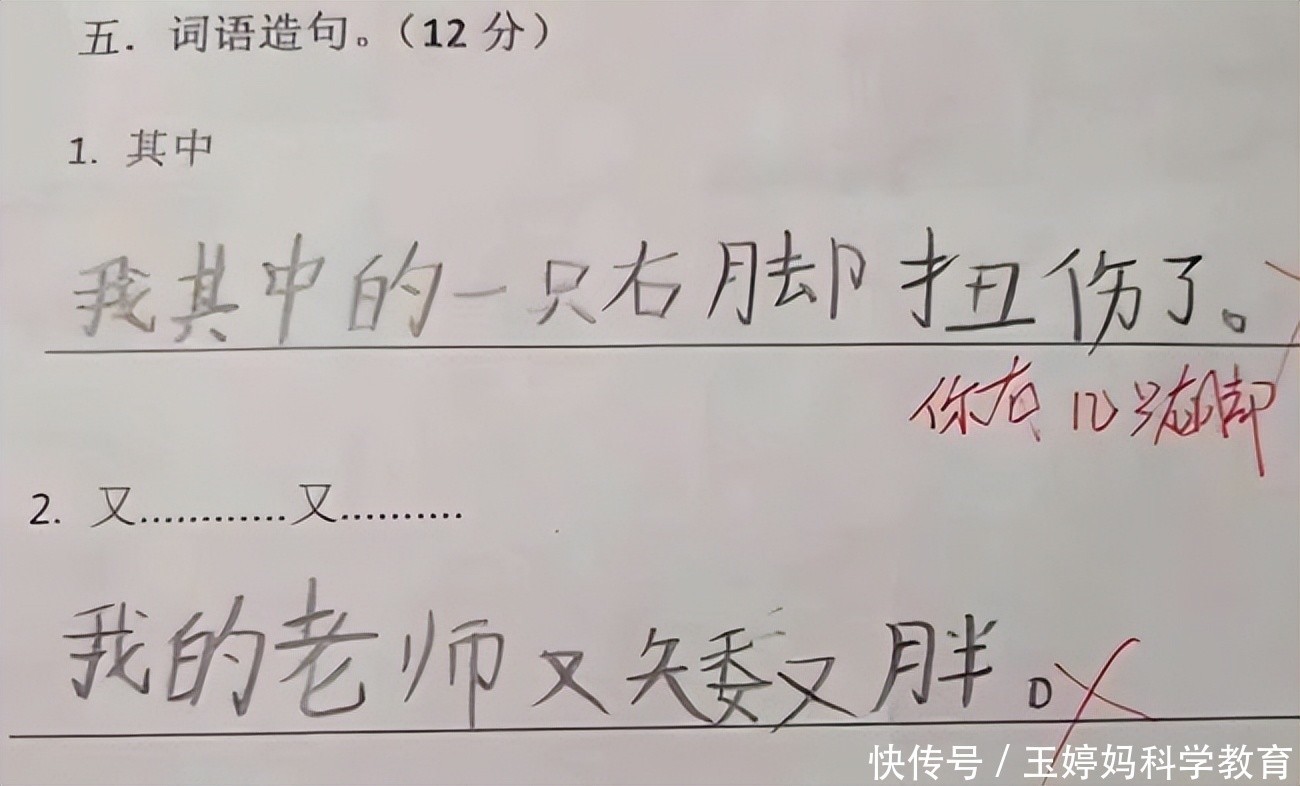 五. 词语造句。（12 分）
1. 其中
我其中的一只右脚扭伤了。
你有几只右脚
2. 又............又..........
我的老师又矮又胖。
快传号 / 玉婷妈科学教育